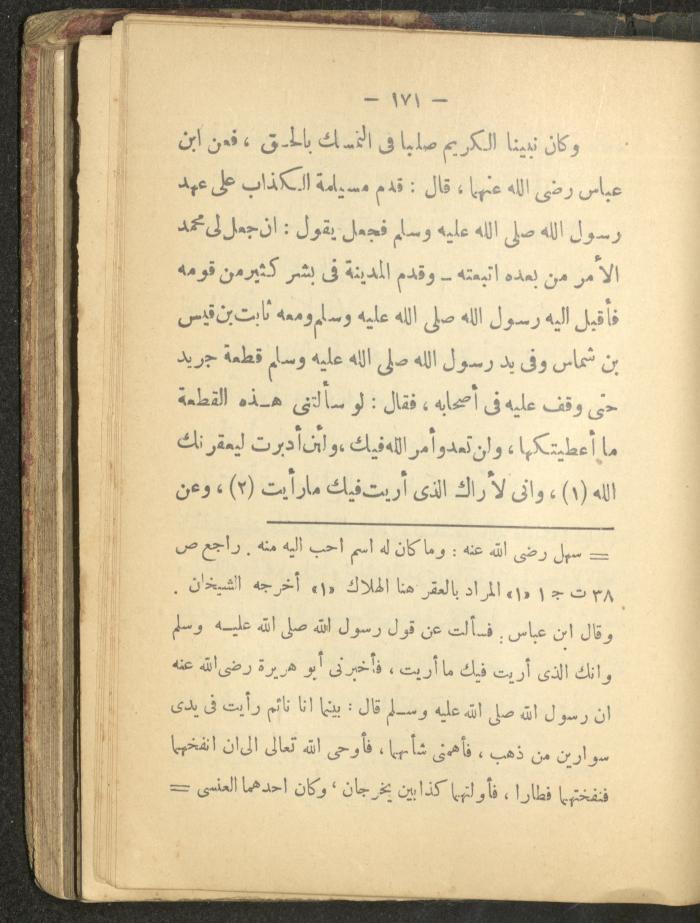 — ١٧١ —
وكان نبينا الكريم صلبا فى التمسك بالحق ، فعن ابن
عباس رضى الله عنهما ، قال : قدم مسيلمة الكذاب على عهد
رسول الله صلى الله عليه وسلم فجعل يقول : ان جعل لى محمد
الأمر من بعده اتبعته ـ وقدم المدينة فى بشر كثير من قومه
فأقبل اليه رسول الله صلى الله عليه وسلم ومعه ثابت بن قيس
بن شماس وفى يد رسول الله صلى الله عليه وسلم قطعة جريد
حتى وقف عليه فى أصحابه ، فقال : لو سألتنى هذه القطعة
ما أعطيتكها ، ولن تعدو أمر الله فيك ، ولئن أدبرت ليعقرنك
الله (١) ، وانى لأراك الذى أريت فيك مارأيت (٢) ، وعن
= سهل رضى الله عنه : وما كان له اسم احب اليه منه . راجع ص
٣٨ ت ج ١ «١» المراد بالعقر هنا الهلاك «١» أخرجه الشيخان .
وقال ابن عباس : فسألت عن قول رسول الله صلى الله عليه وسلم
وانك الذى أريت فيك ما أريت ، فأخبرنى أبو هريرة رضى الله عنه
ان رسول الله صلى الله عليه وسلم قال : بينما انا نائم رأيت فى يدى
سوارين من ذهب ، فأهمنى شأنهما ، فأوحى الله تعالى الى ان انفخهما
فنفختهما فطارا ، فأولتهما كذابين يخرجان ، وكان احدهما العنسى =